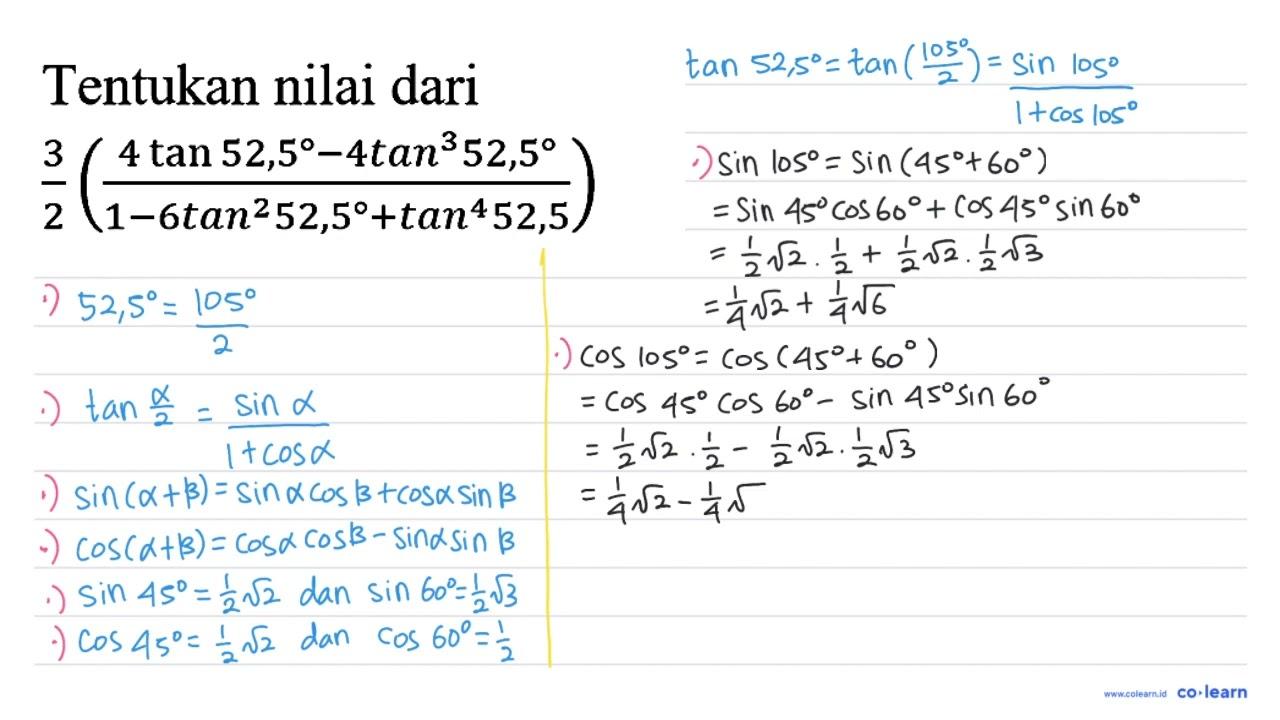 Tentukan nilai dari
3/2 ((4 tan 52,5°−4tan³52,5°)/(1−6tan²52,5°+tan⁴52,5))
·) 52,5° = 105°/2
·) tan α/2 = sin α/(1+cos α)
·) sin(α+β) = sin α cos β + cos α sin β
·) cos(α+β) = cos α cos β − sin α sin β
·) sin 45° = 1/2 √2 dan sin 60° = 1/2 √3
·) cos 45° = 1/2 √2 dan cos 60° = 1/2
tan 52,5° = tan(105°/2) = sin 105°/(1+cos 105°)
·) sin 105° = sin (45°+60°)
= sin 45° cos 60° + cos 45° sin 60°
= 1/2 √2 . 1/2 + 1/2 √2 . 1/2 √3
= 1/4 √2 + 1/4 √6
·) cos 105° = cos (45°+60°)
= cos 45° cos 60° − sin 45° sin 60°
= 1/2 √2 . 1/2 − 1/2 √2 . 1/2 √3
= 1/4 √2 − 1/4 √
www.colearn.id co·learn